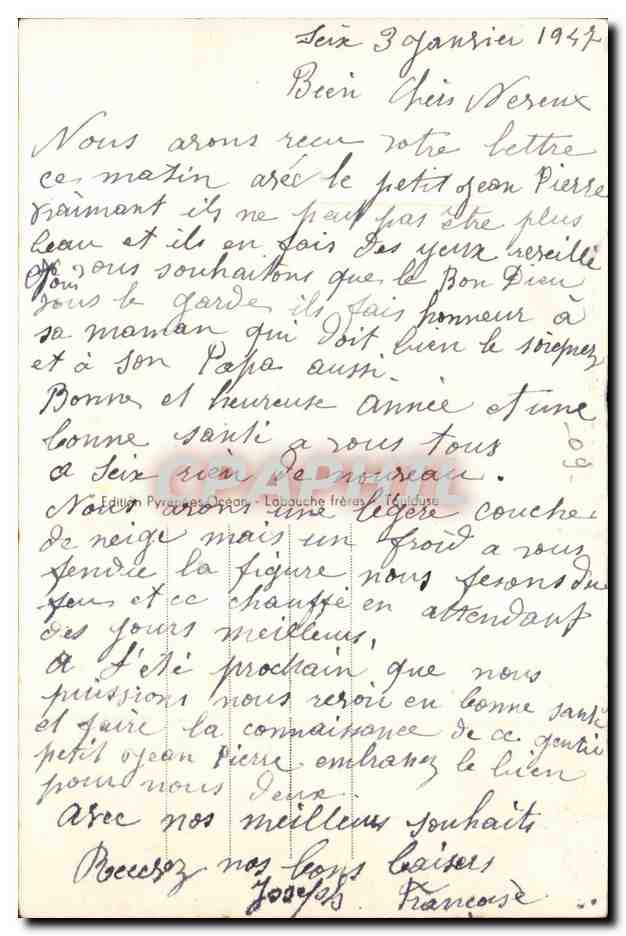 Seix 3 Janvier 1947
Bien Chers Neveux
Nous avons recu votre lettre
ce matin avec le petit Jean Pierre
vraimant ils ne peut pas être plus
beau et ils en fais des yeux reveillé
Nous vous souhaitons que le Bon Dieu
vous le garde ils fais honneur à
sa maman qui doit bien le soignez
et à son Papa aussi.
Bonne et heureuse année et une
bonne santé a vous tous
a Seix rien de nouveau.
Edition Pyrénées Océan - Labouche frères - Toulouse
Nous avons une legère couche
de neige mais un froid a vous
fendre la figure nous fesons du
feu et ce chauffé en attendant
des jours meilleurs,
a l'été prochain que nous
puissions nous revoir en bonne santé
et faire la connaissance de ce gentil
petit Jean Pierre embrassez le bien
pour nous deux.
avec nos meilleurs souhaits
Recevez nos bons baisers
Joseph Françoise